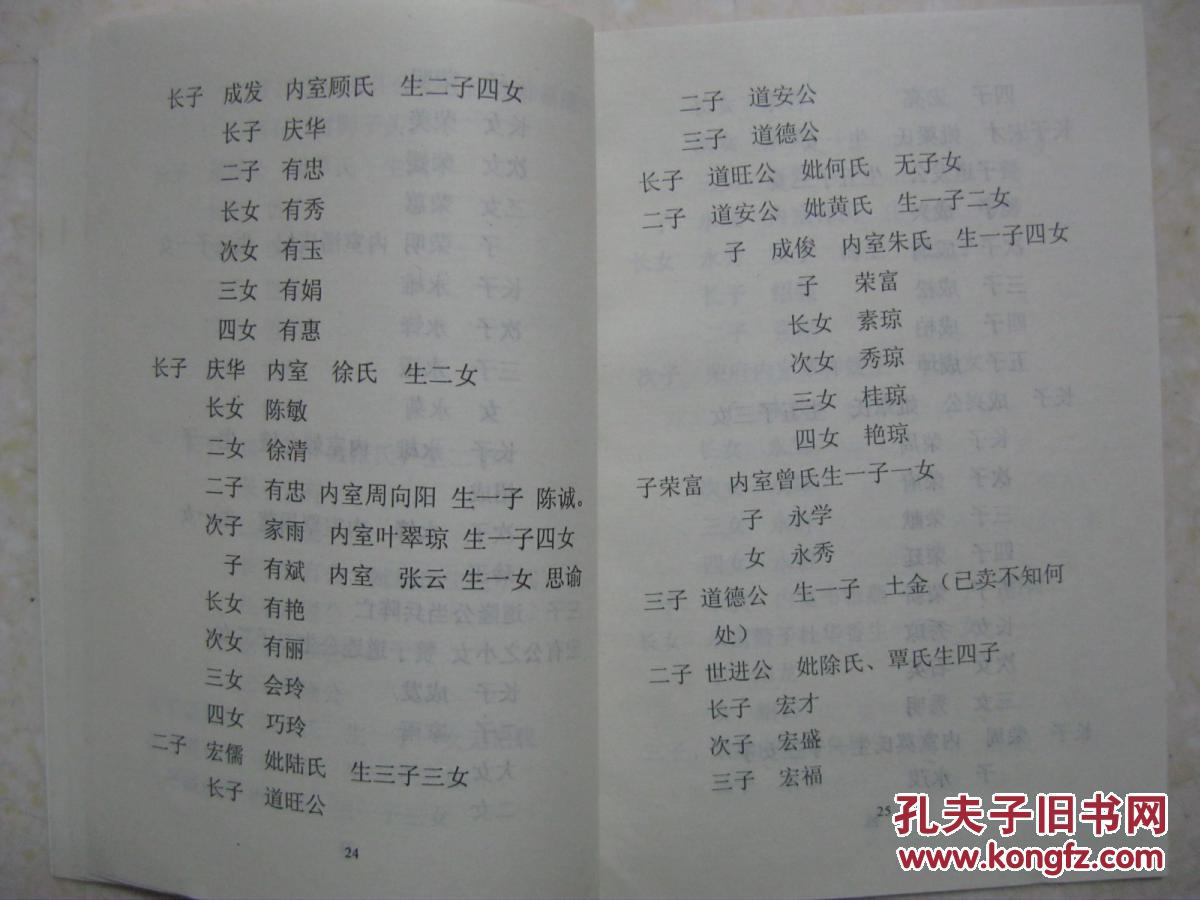 长子 成发 内室顾氏 生二子四女
长子 庆华
二子 有忠
长女 有秀
次女 有玉
三女 有娟
四女 有惠
长子 庆华 内室 徐氏 生二女
长女 陈敏
二女 徐清
二子 有忠 内室周向阳 生一子 陈诚。
次子 家雨 内室叶翠琼 生一子四女
子 有斌 内室 张云 生一女 思谕
长女 有艳
次女 有丽
三女 会玲
四女 巧玲
二子 宏儒 妣陆氏 生三子三女
长子 道旺公
24
二子 道安公
三子 道德公
长子 道旺公 妣何氏 无子女
二子 道安公 妣黄氏 生一子二女
子 成俊 内室朱氏 生一子四女
子 荣富
长女 素琼
次女 秀琼
三女 桂琼
四女 艳琼
子荣富 内室曾氏生一子一女
子 永学
女 永秀
三子 道德公 生一子 土金（已卖不知何
处）
二子 世进公 妣除氏、覃氏生四子
长子 宏才
次子 宏盛
三子 宏福
25
孔夫子旧书网
www.kongfz.com